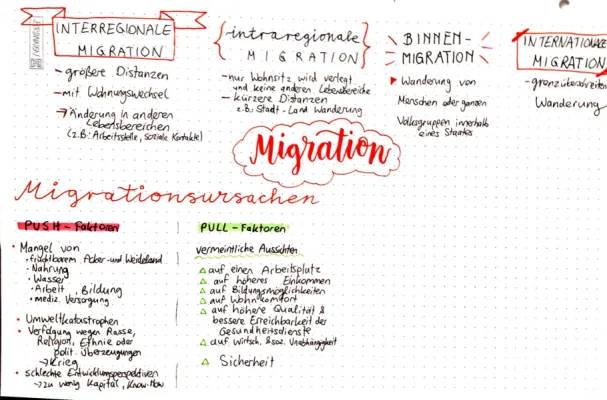 INTERREGIONALE
MIGRATION
- größere Distanzen
- mit Wohnungswechsel
→ Änderung in anderen
Lebensbereichen
(z.B.: Arbeitsstelle, soziale Kontakte)
intraregionale
MIGRATION
- nur Wohnsitz wird verlegt
und keine anderen Lebensbereiche
- kürzere Distanzen
z.B.: Stadt-Land Wanderung
BINNEN-
MIGRATION
Wanderung von
Menschen oder ganzen
Volksgruppen innerhalb
eines Staates
INTERNATIONALE
MIGRATION
- grenzüberschreiten
Wanderung
Migration
Migrationsursachen
PUSH-Faktoren
• Mangel von
• fruchtbarem Acker- und Weideland
• Nahrung
• Wasser
• Arbeit, Bildung
• mediz. Versorgung
• Umweltkatastrophen
• Verfolgung wegen Rasse,
Religion, Ethnie oder
polit. Überzeugungen
→ Krieg
• schlechte Entwicklungsperspektiven
→ zu wenig Kapital, Know-How
PULL-Faktoren
vermeintliche Aussichten
△ auf einen Arbeitsplatz
△ auf höheres Einkommen
△ auf Bildungsmöglichkeiten
△ auf Wohnkomfort
△ auf höhere Qualität &
bessere Erreichbarkeit der
Gesundheitsdienste
△ auf wirtsch. & soz. Unabhängigkeit
△ Sicherheit